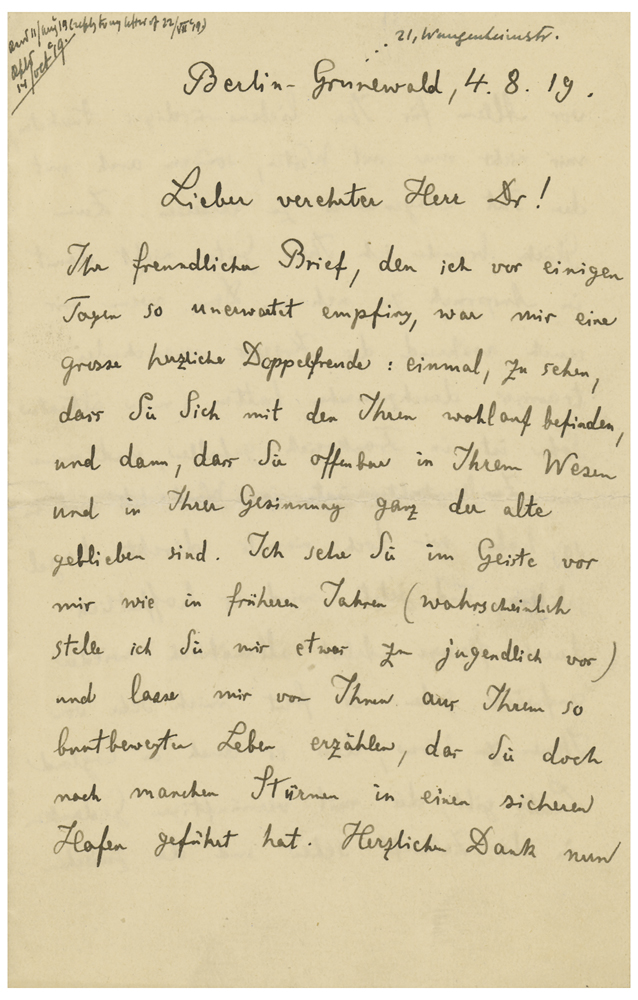 21, Wangenheimstr.
Berlin-Grunewald, 4. 8. 19.
Lieber verehrter Herr Dr!
Ihr freundlicher Brief, den ich vor einigen
Tagen so unerwartet empfing, war mir eine
grosse herzliche Doppelfreude : einmal, zu sehen,
dass Sie Sich mit den Ihren wohlauf befinden,
und dann, dass Sie offenbar in Ihrem Wesen
und in Ihrer Gesinnung ganz der alte
geblieben sind. Ich sehe Sie im Geiste vor
mir wie in früheren Jahren (wahrscheinlich
stelle ich Sie mir etwas zu jugendlich vor)
und lasse mir von Ihnen aus Ihrem so
buntbewegten Leben erzählen, das Sie doch
nach manchen Stürmen in einen sicheren
Hafen geführt hat. Herzlichen Dank nun